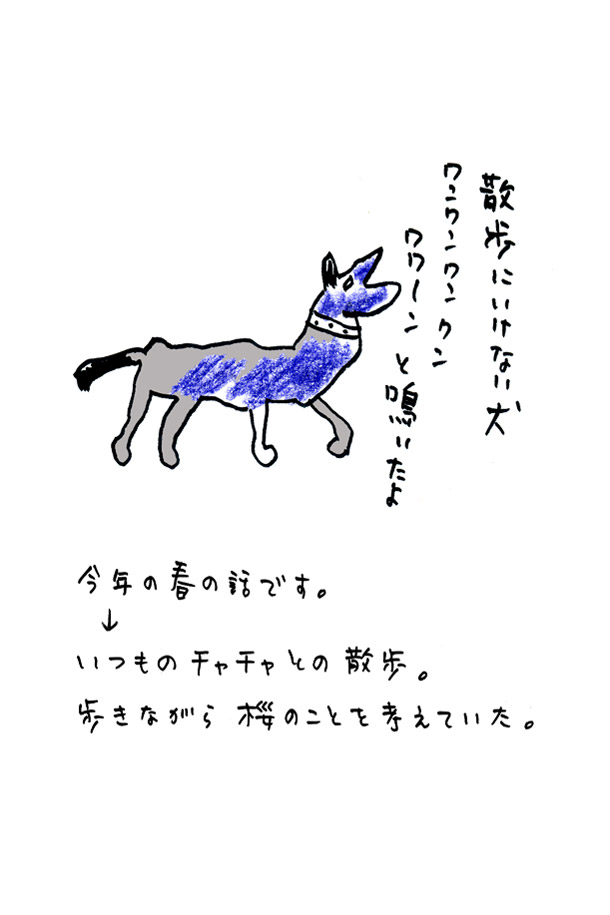 散歩にいけない犬
ワンワンワンワン
ワワーンと鳴いたよ
今年の春の話です。
↓
いつものチャチャとの散歩。
歩きながら桜のことを考えていた。